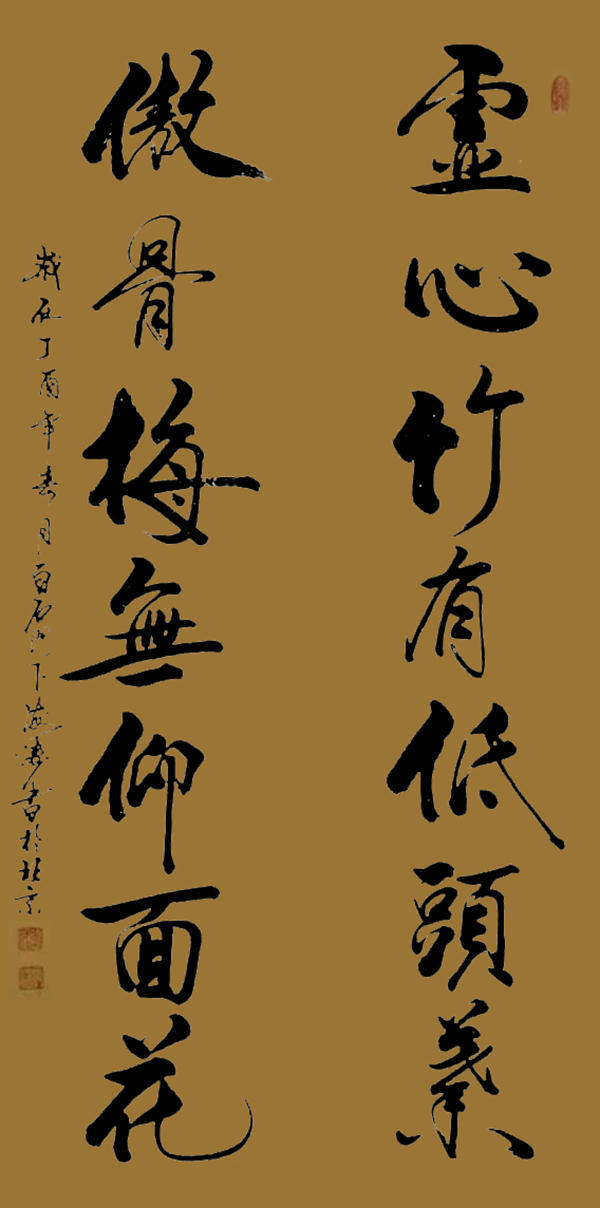 虛心竹有低頭葉
傲骨梅無仰面花
歲在丁酉年春月 書於北京